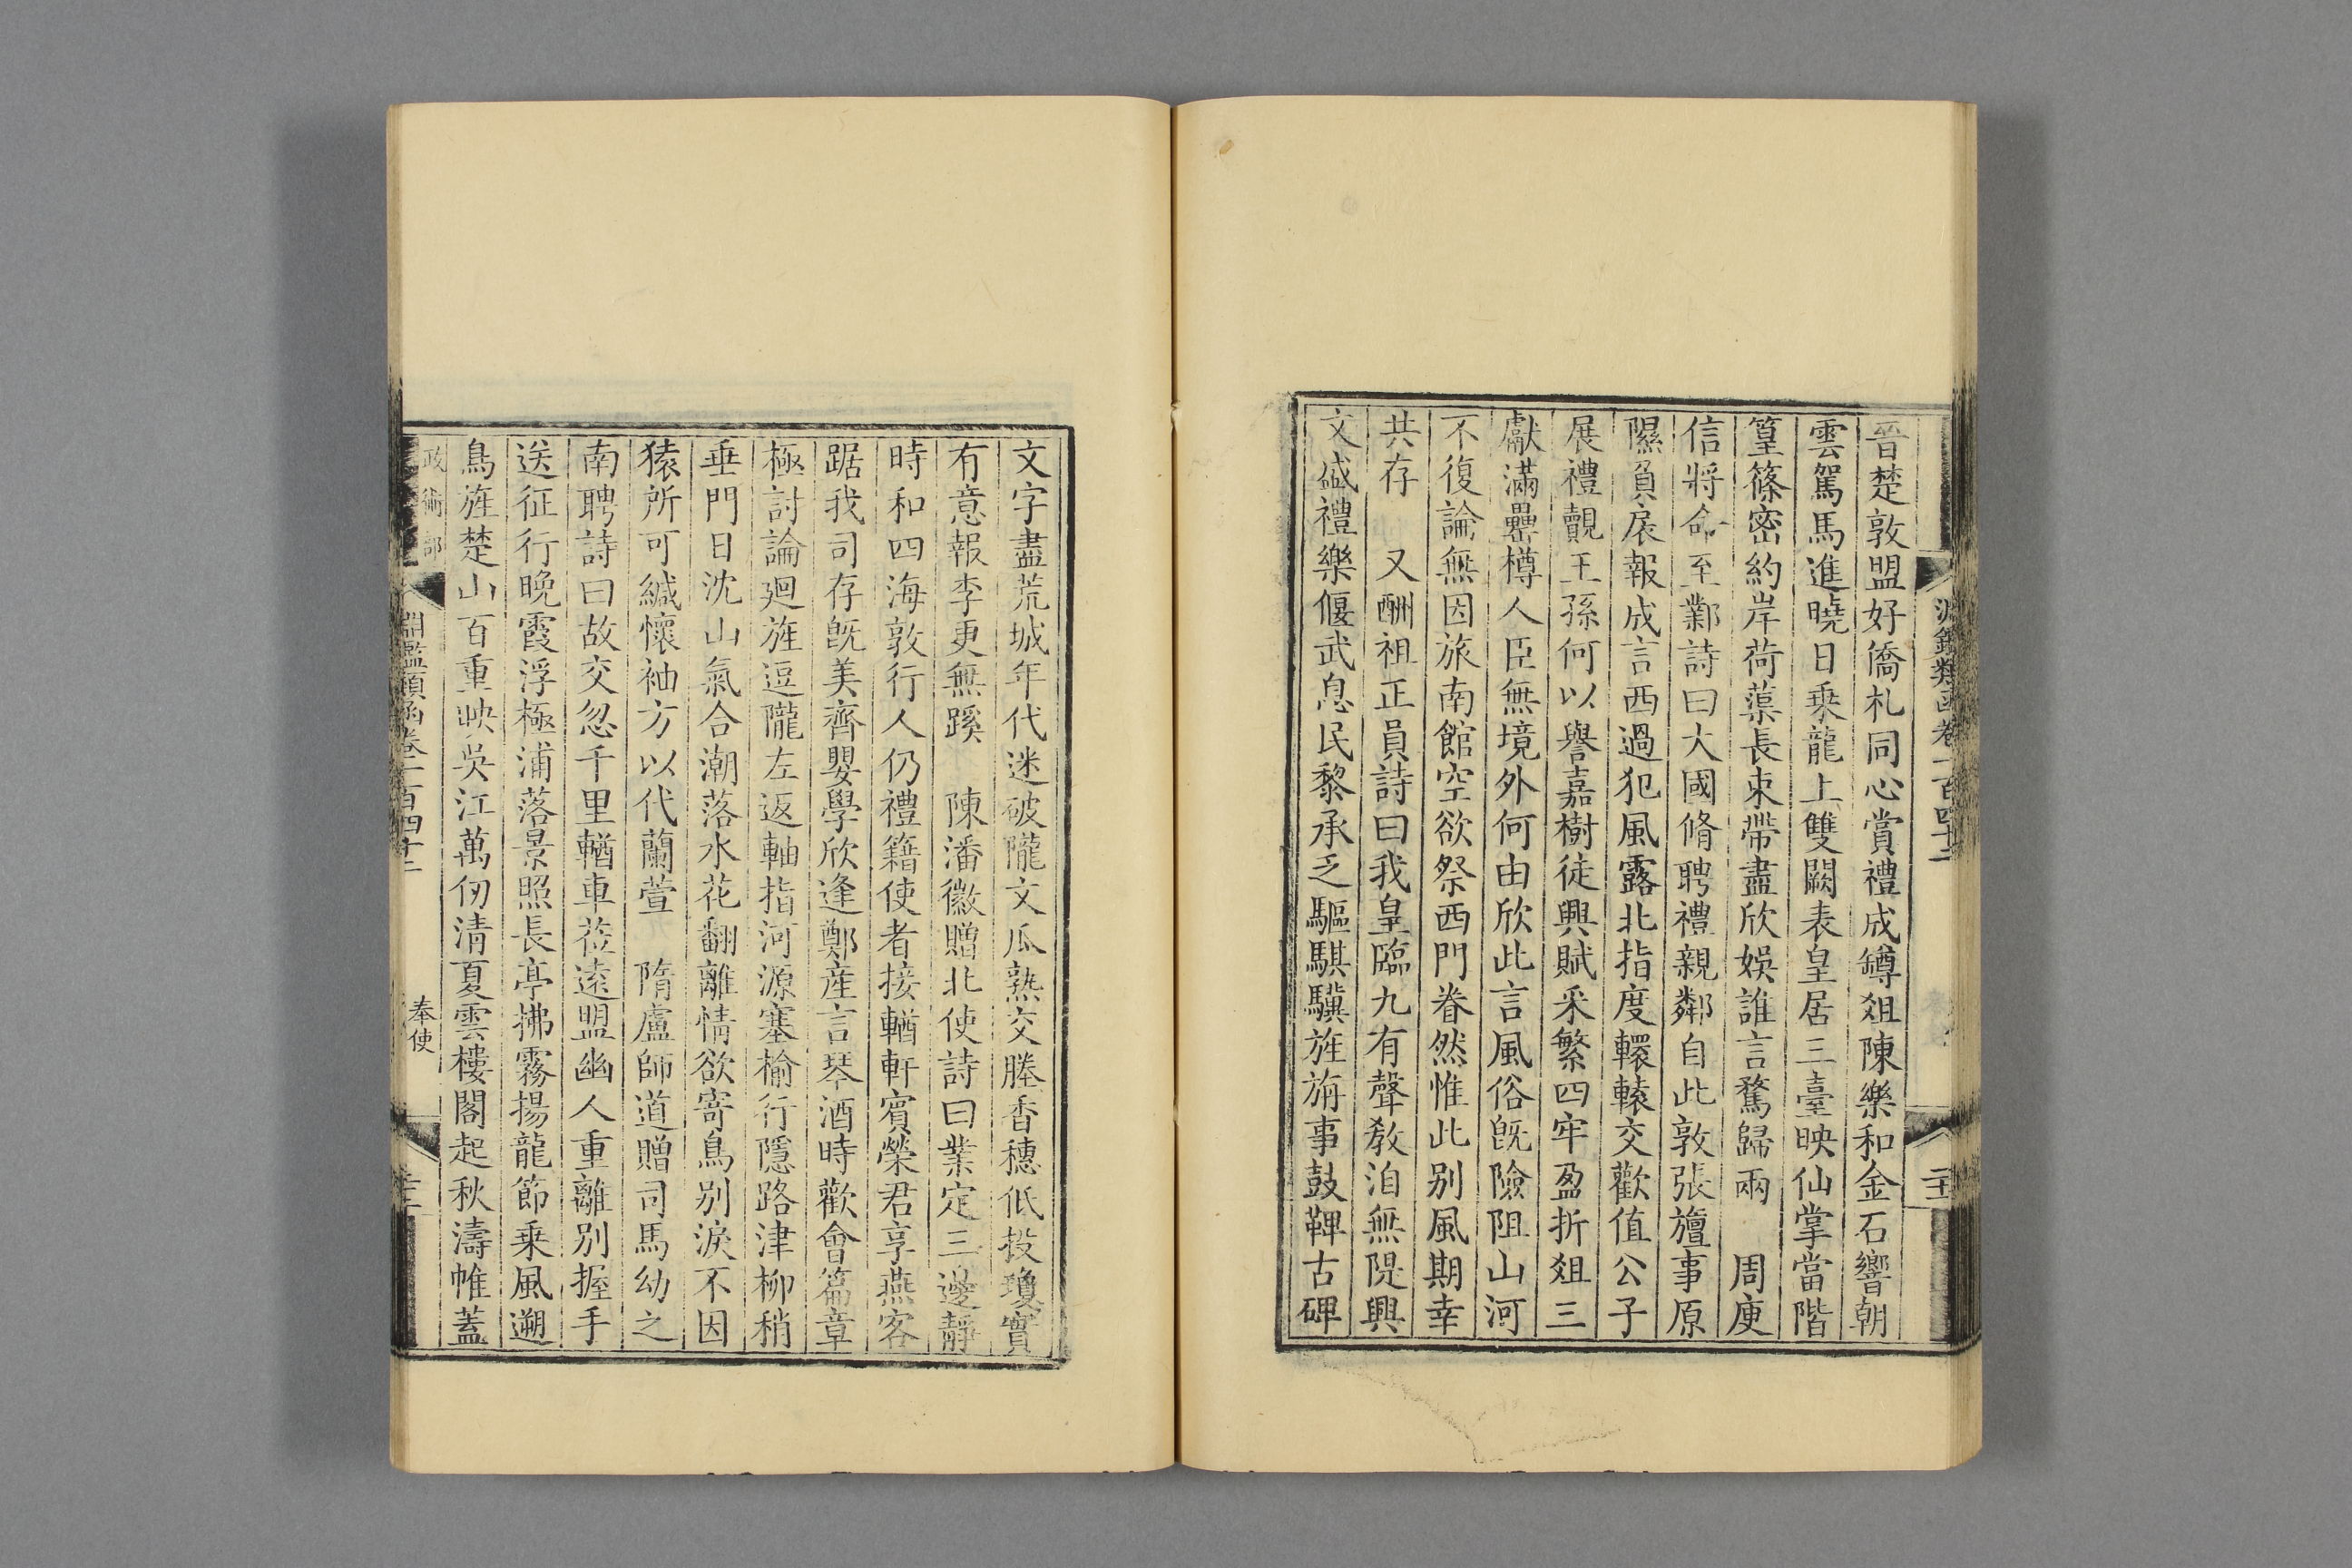 晉楚敦盟好僑札同心賞禮成罇爼陳樂和金石響朝
雲駕馬進曉日乗龍上雙闕表皇居三臺映仙掌當階
篁篠密約岸荷蕖長束帶盡欣娛誰言騖歸兩　周庾
信將命至鄴詩曰大國脩聘禮親鄰自此敦張旜事原
隰負扆報成言西過犯風露北指度轘轅交歡值公子
展禮覿王孫何以譽嘉樹徒興賦采繁四牢盈折爼三
獻滿罍樽人臣無境外何由欣此言風俗旣險阻山河
不復論無因旅南館空欲祭西門眷然惟此别風期幸
共存　又酬祖正員詩曰我皇臨九有聲敎洎無隄興
文盛禮樂偃武息民黎承乏驅騏驥旌旃事鼓鞞古碑
文字盡荒城年代迷破隴文瓜熟交塍香穗低投瓊實
有意報李更無蹊　陳潘徽贈北使詩曰業定三邊靜
時和四海敦行人仍禮籍使者接輶軒賓榮君享燕客
踞我司存旣美齊嬰學欣逢鄭産言琴酒時歡會篇章
極討論廻旌逗隴左返軸指河源塞榆行隱路津柳稍
垂門日沈山氣合潮落水花翻離情欲寄鳥别淚不因
猿所可緘懷袖方以代蘭萱　隋盧師道贈司馬幼之
南聘詩曰故交忽千里輶車莅遠盟幽人重離別握手
送征行晚霞浮極浦落景照長亭拂霧揚龍節乗風遡
鳥旌楚山百重映吳江萬仞清夏雲樓閣起秋濤帷蓋
政術部
淵鑑類函卷二百四十二
奉使